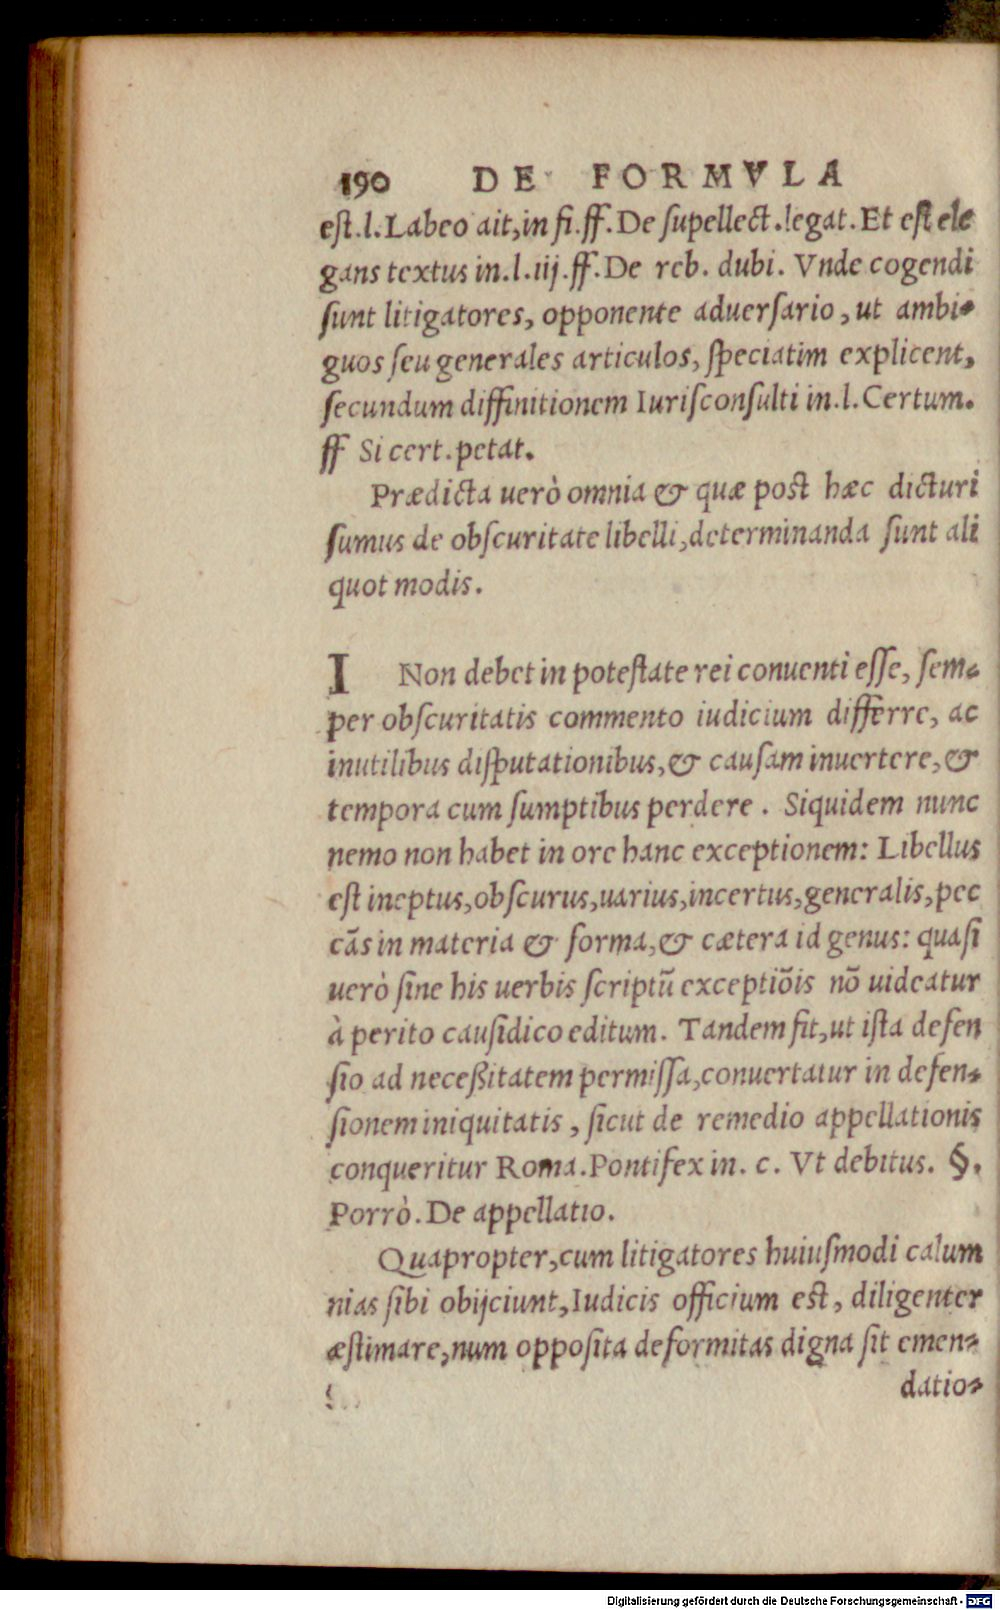 190 DE FORMVLA
est.l.Labeo ait,in fi.ff.De supellect.legat.Et est ele
gans textus in.l.iij.ff.De reb. dubi. Vnde cogendi
sunt litigatores, opponente aduersario, ut ambi-
guos seu generales articulos, speciatim explicent,
secundum diffinitionem Iurisconsulti in.l.Certum.
ff Si cert.petat.
Prædicta uerò omnia & quæ post hæc dicturi
sumus de obscuritate libelli,determinanda sunt ali
quot modis.
I Non debet in potestate rei conuenti esse, sem-
per obscuritatis commento iudicium differre, ac
inutilibus disputationibus,& causam inuertere,&
tempora cum sumptibus perdere. Siquidem nunc
nemo non habet in ore hanc exceptionem: Libellus
est ineptus,obscurus,uarius,incertus,generalis,pec
cãs in materia & forma,& cætera id genus: quasi
uerò sine his uerbis scriptũ exceptiõis nõ uideatur
à perito causidico editum. Tandem fit,ut ista defen
sio ad neceßitatem permissa,conuertatur in defen-
sionem iniquitatis, sicut de remedio appellationis
conqueritur Roma.Pontifex in. c. Vt debitus. §.
Porrò.De appellatio.
Quapropter,cum litigatores huiusmodi calum
nias sibi obijciunt,Iudicis officium est, diligenter
æstimare,num opposita deformitas digna sit emen-
datio-
Digitalisierung gefördert durch die Deutsche Forschungsgemeinschaft - DFG